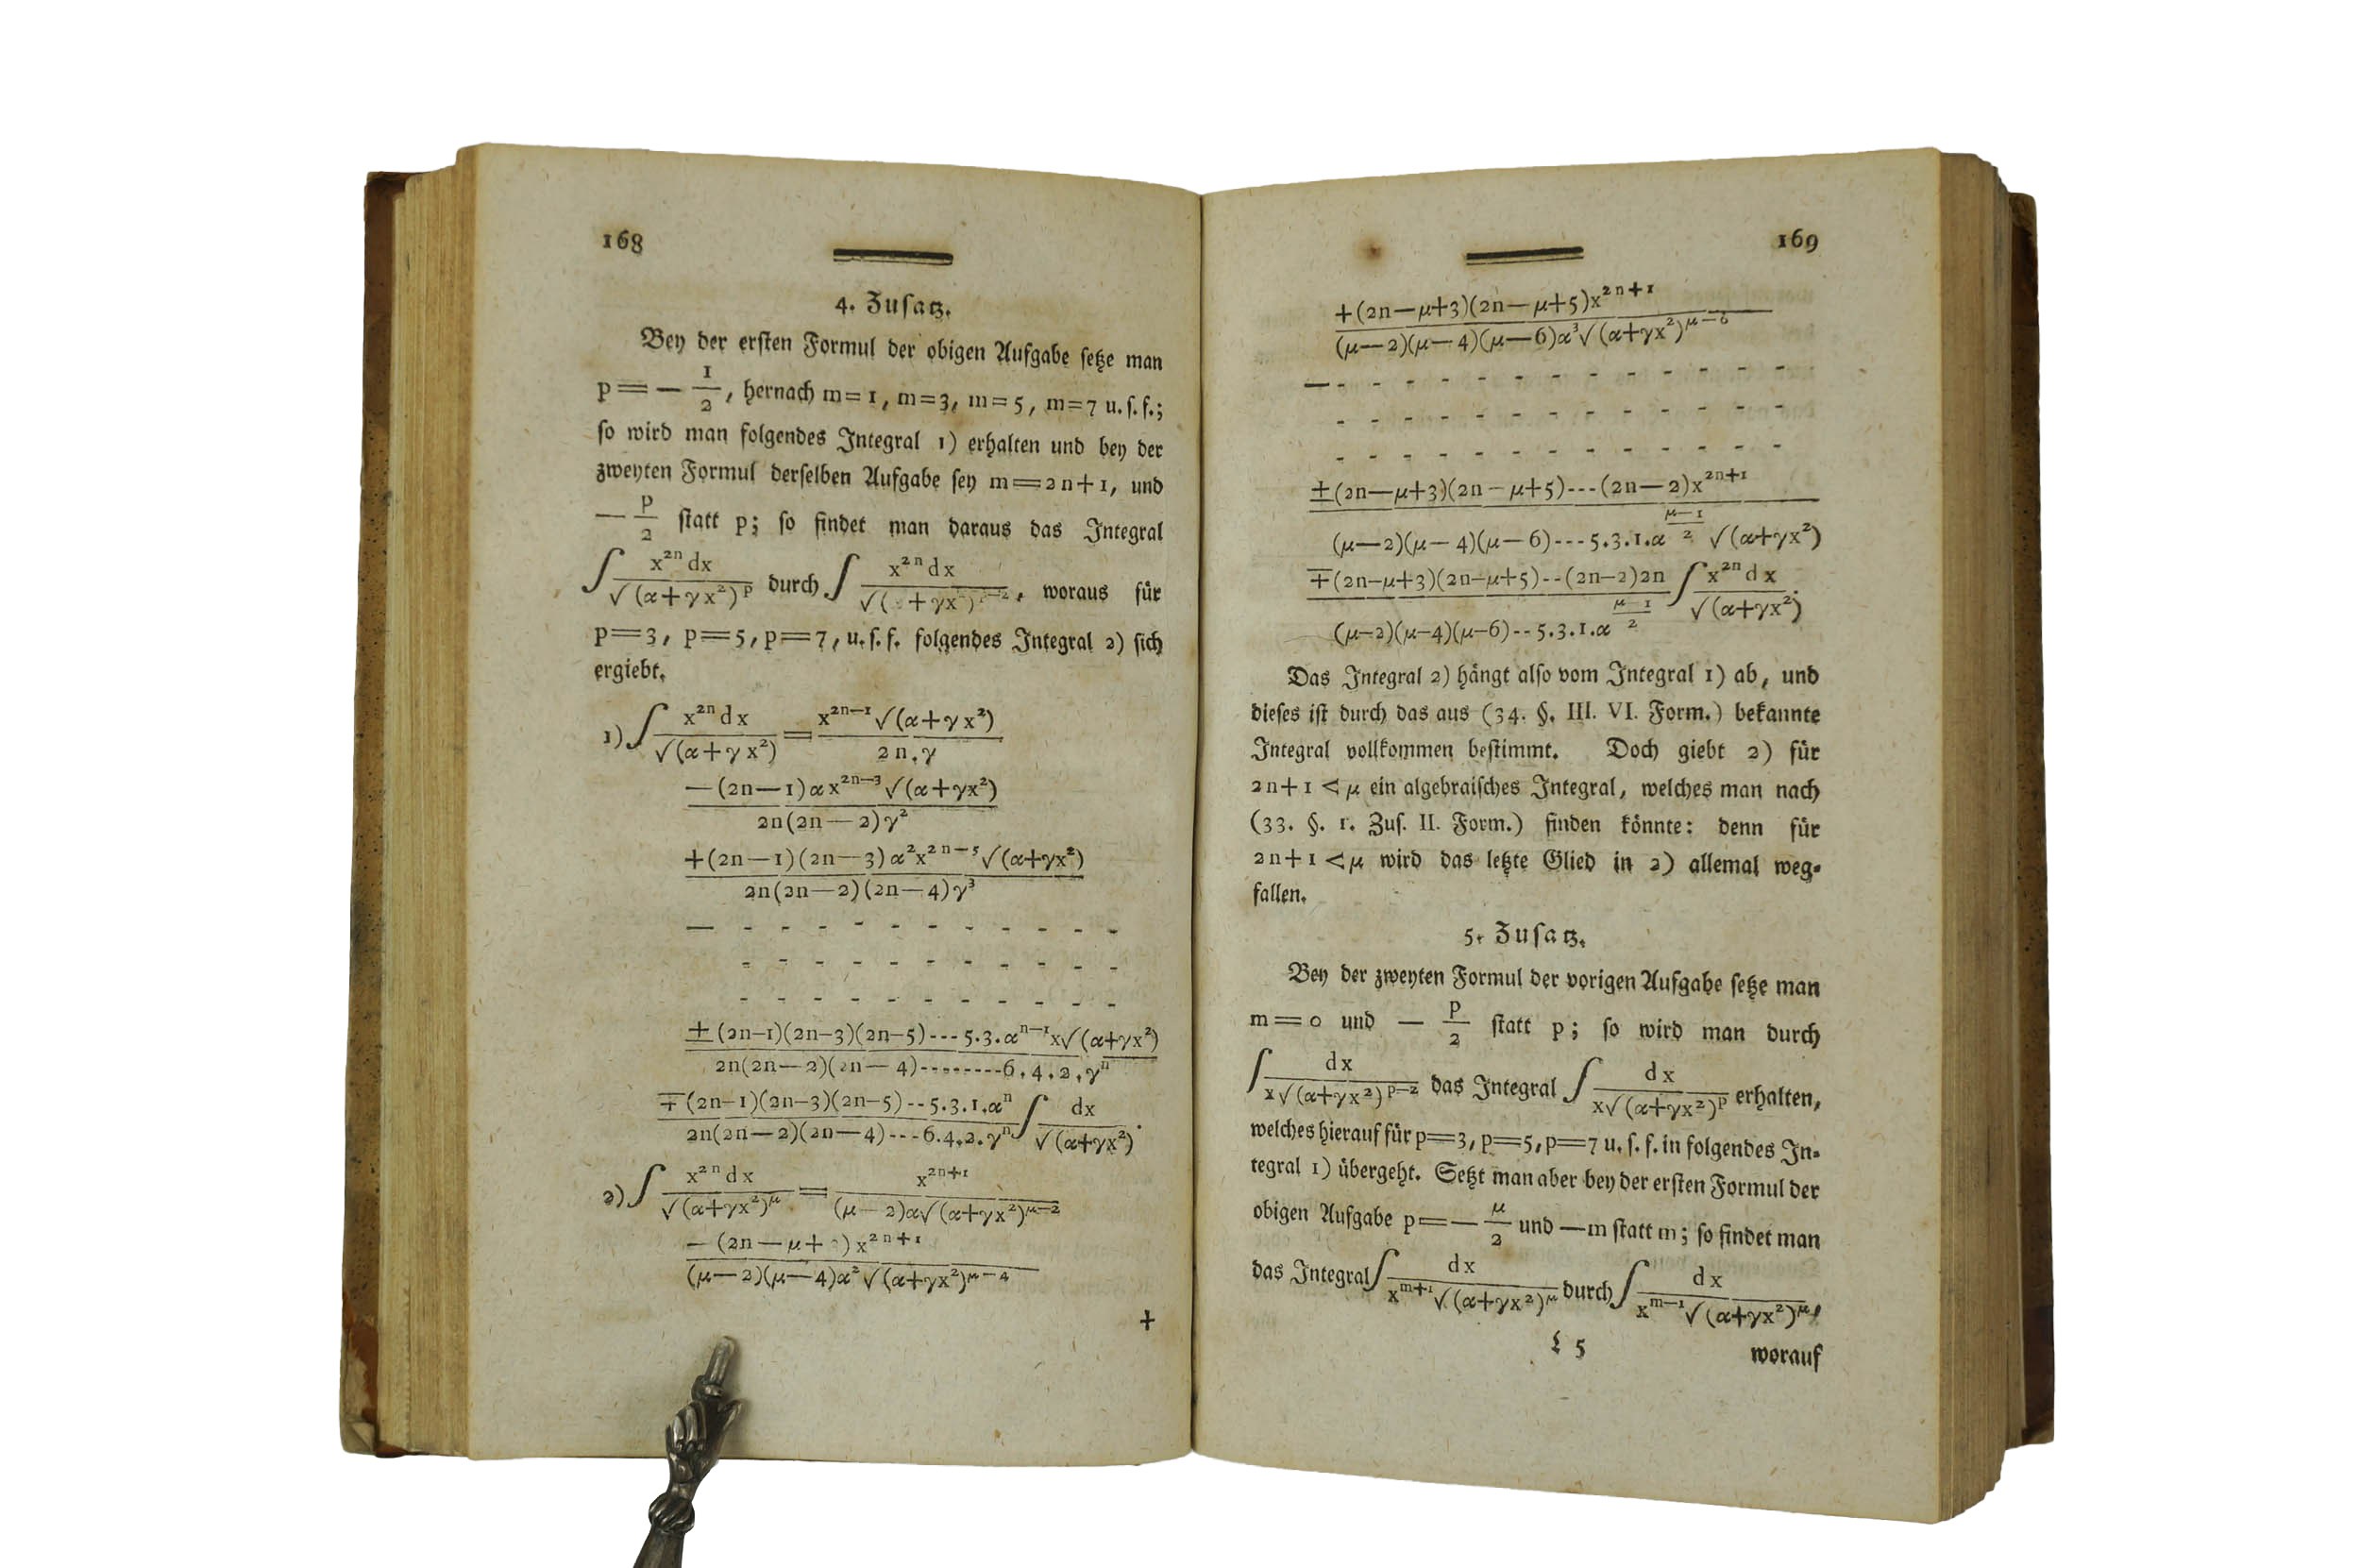 168
4. Zusatz.
Bey der ersten Formul der obigen Aufgabe setze man
p = — 1/2, hernach m = 1, m = 3, m = 5, m = 7 u. s. f.;
so wird man folgendes Integral 1) erhalten und bey der
zweyten Formul derselben Aufgabe sey m = 2n + 1, und
— p/2 statt p; so findet man daraus das Integral
∫ x²ⁿdx / √(α+γx²)ᵖ durch ∫ x²ⁿdx / √( +γx²)ᵖ⁻², woraus für
p = 3, p = 5, p = 7, u. s. f. folgendes Integral 2) sich
ergiebt.
1) ∫ x²ⁿdx / √(α+γx²) = x²ⁿ⁻¹√(α+γx²) / 2n.γ
— (2n—1)αx²ⁿ⁻³√(α+γx²) / 2n(2n—2)γ²
+ (2n—1)(2n—3)α²x²ⁿ⁻⁵√(α+γx²) / 2n(2n—2)(2n—4)γ³
— - - - - - - - - - - -
- - - - - - - - - - -
- - - - - - - - - - -
± (2n—1)(2n—3)(2n—5)---5.3.αⁿ⁻¹x√(α+γx²) / 2n(2n—2)(2n—4)--------6.4.2.γⁿ
∓ (2n—1)(2n—3)(2n—5)--5.3.1.αⁿ / 2n(2n—2)(2n—4)---6.4.2.γⁿ ∫ dx / √(α+γx²).
2) ∫ x²ⁿdx / √(α+γx²)^μ = x²ⁿ⁺¹ / (μ—2)α√(α+γx²)^(μ—2)
— (2n—μ+ )x²ⁿ⁺¹ / (μ—2)(μ—4)α²√(α+γx²)^(μ—4)
+
169
+ (2n—μ+3)(2n—μ+5)x²ⁿ⁺¹ / (μ—2)(μ—4)(μ—6)α³√(α+γx²)^(μ—6)
— - - - - - - - - - - - - -
- - - - - - - - - - - - -
- - - - - - - - - - - - -
± (2n—μ+3)(2n—μ+5)---(2n—2)x²ⁿ⁺¹ / (μ—2)(μ—4)(μ—6)---5.3.1.α^((μ—1)/2) √(α+γx²)
∓ (2n—μ+3)(2n—μ+5)--(2n—2)2n / (μ—2)(μ—4)(μ—6)--5.3.1.α^((μ—1)/2) ∫ x²ⁿdx / √(α+γx²).
Das Integral 2) hängt also vom Integral 1) ab, und
dieses ist durch das aus (34. §. III. VI. Form.) bekannte
Integral vollkommen bestimmt. Doch giebt 2) für
2n+1 < μ ein algebraisches Integral, welches man nach
(33. §. 1. Zus. II. Form.) finden könnte: denn für
2n+1 < μ wird das letzte Glied in 2) allemal weg-
fallen.
5. Zusatz.
Bey der zweyten Formul der vorigen Aufgabe setze man
m = 0 und — p/2 statt p; so wird man durch
∫ dx / x√(α+γx²)ᵖ⁻² das Integral ∫ dx / x√(α+γx²)ᵖ erhalten,
welches hierauf für p=3, p=5, p=7 u. s. f. in folgendes In-
tegral 1) übergeht. Setzt man aber bey der ersten Formul der
obigen Aufgabe p = — μ/2 und —m statt m; so findet man
das Integral ∫ dx / xᵐ⁺¹√(α+γx²)^μ durch ∫ dx / xᵐ⁻¹√(α+γx²)^μ,
L 5
worauf